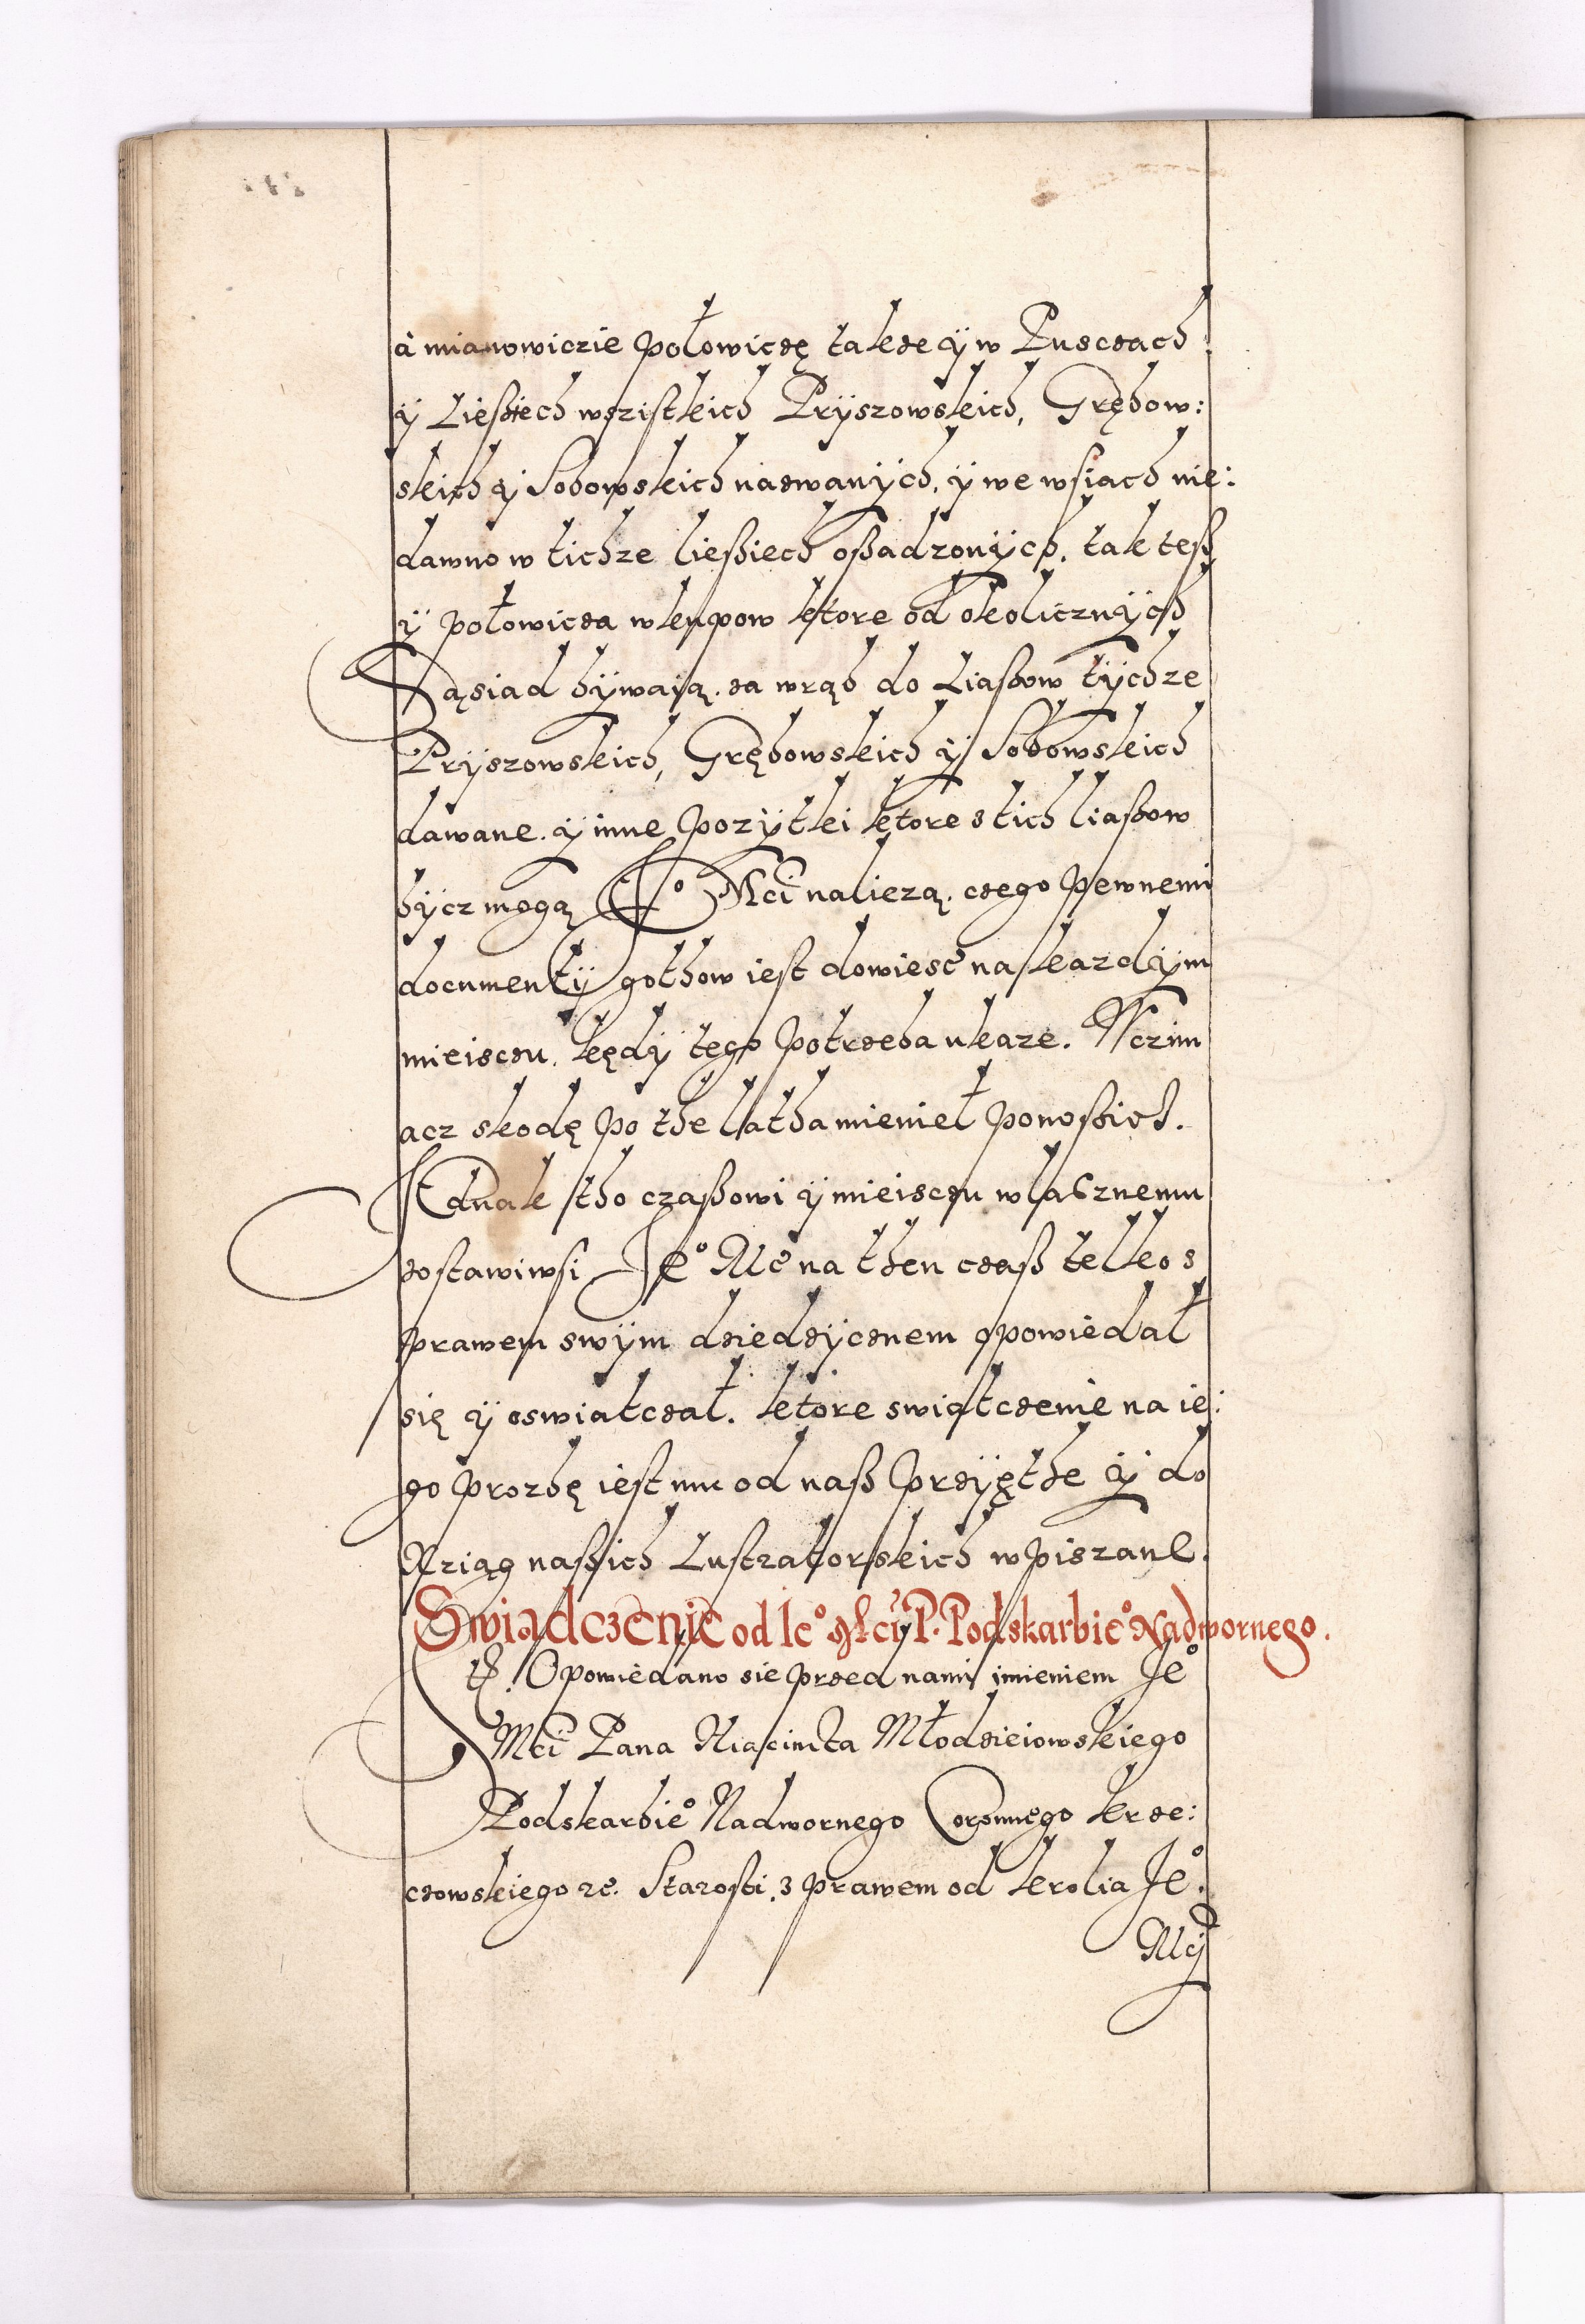 à mianowiczie połowiczę także ÿ w Pusczach
ÿ Ließiech wszistkich Pryszowskich, Grębow:
skich ÿ Sobowskich nazwanÿch, ÿ we wsiach nie:
dawno w tichze ließiech oßadzonÿch, tak teß
ÿ połowicza wkupow ktore od okolicznÿch
Sąsiad bÿwaią, za wrąb do Liaßow tÿchze
Pryszowskich, Grębowskich ÿ Sobowskich
dawane, ÿ inne pozÿtki ktore z tich liaßow
bÿcz mogą Je° Mci należą, czego pewnemi
documentÿ gothow iest dowiesc na kazdÿm
mieisczu, kędÿ tego potrzeba ukaze. W czim
acz skodę po the latha mieniel ponoßicz.
Jednak tho czaßowi ÿ mieisczu wlacznemu
zostawiwsi Je° Mć na then czaß telko z
prawem swÿm dziedzÿcznem opowiedał
się ÿ oswiatczał. ktore swiatczenie na ie:
go prozbę iest mu od naß przÿęthe ÿ do
Xziąg naßich Lustratorskich wpiszane.
Swiadczenie od Ie° Mci P. Podskarbie° Nadwornego.
Opowiedano sie przed nami imieniem Je°
Mci Pana Hiacintha Młodzieiowskiego
Podskarbie° Nadwornego Coronnego krze:
czowskiego zc. Starosti, z prawem od krolia Je°
Mcÿ